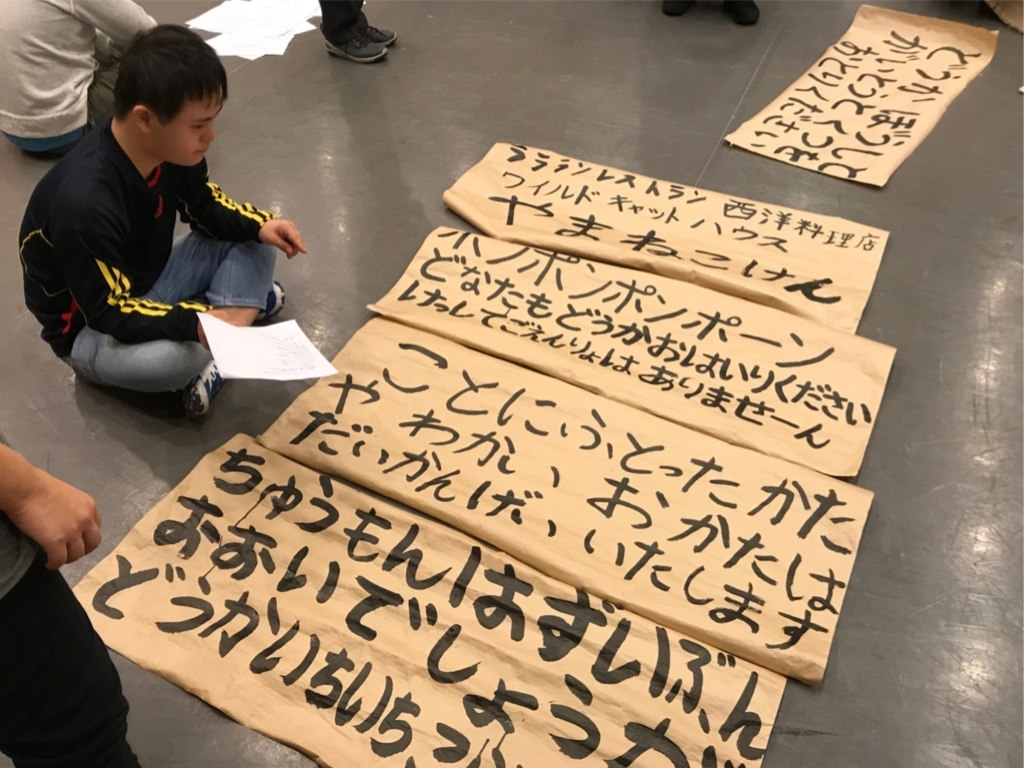 どうか ぼうしと
がいとうと くつを
おとりください
ララランレストラン 西洋料理店
ワイルド キャット ハウス
やまねこけん
ポンポンポンポーン
どなたもどうかおはいりください
けっしてごえんりょはありませーん
ことにふとった かた
や わかい おかたは
だいかんげい いたします
ちゅうもんはずいぶん
おおいでしょうが
どうかいちいち